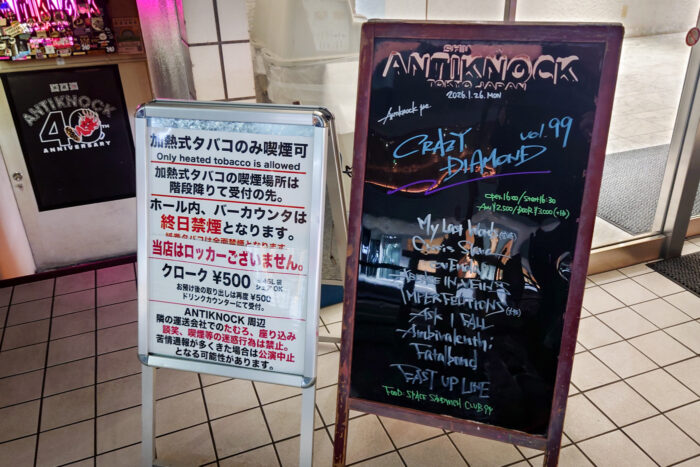 ANTIKNOCK
40TH
ANNIVERSARY
加熱式タバコのみ喫煙可
Only heated tobacco is allowed
加熱式タバコの喫煙場所は
階段降りて受付の先。
ホール内、バーカウンタは
終日禁煙となります。
当店はロッカーございません。
クローク ¥500
45L袋
シェアOK
お預け後の取り出しは再度 ¥500
ドリンクカウンターにて受付。
ANTIKNOCK 周辺
隣の運送会社でのたむろ、座り込み
談笑、喫煙等の迷惑行為は禁止。
苦情通報が多くきた場合は公演中止
となる可能性があります。
ANTIKNOCK
TOKYO JAPAN
2026.1.26.MON
Antiknock pre.
CRAZY
DIAMOND
vol.99
OPEN 16:00/START 16:30
Adv ¥2,500/DOOR ¥3,000 (+1D)
My Last Words
IMPERFECTIONS
Ask I FALL
Ambivalenth;
Fatalbond
EAST UP LINE
FOOD: SPACE SANDWICH CLUB 94